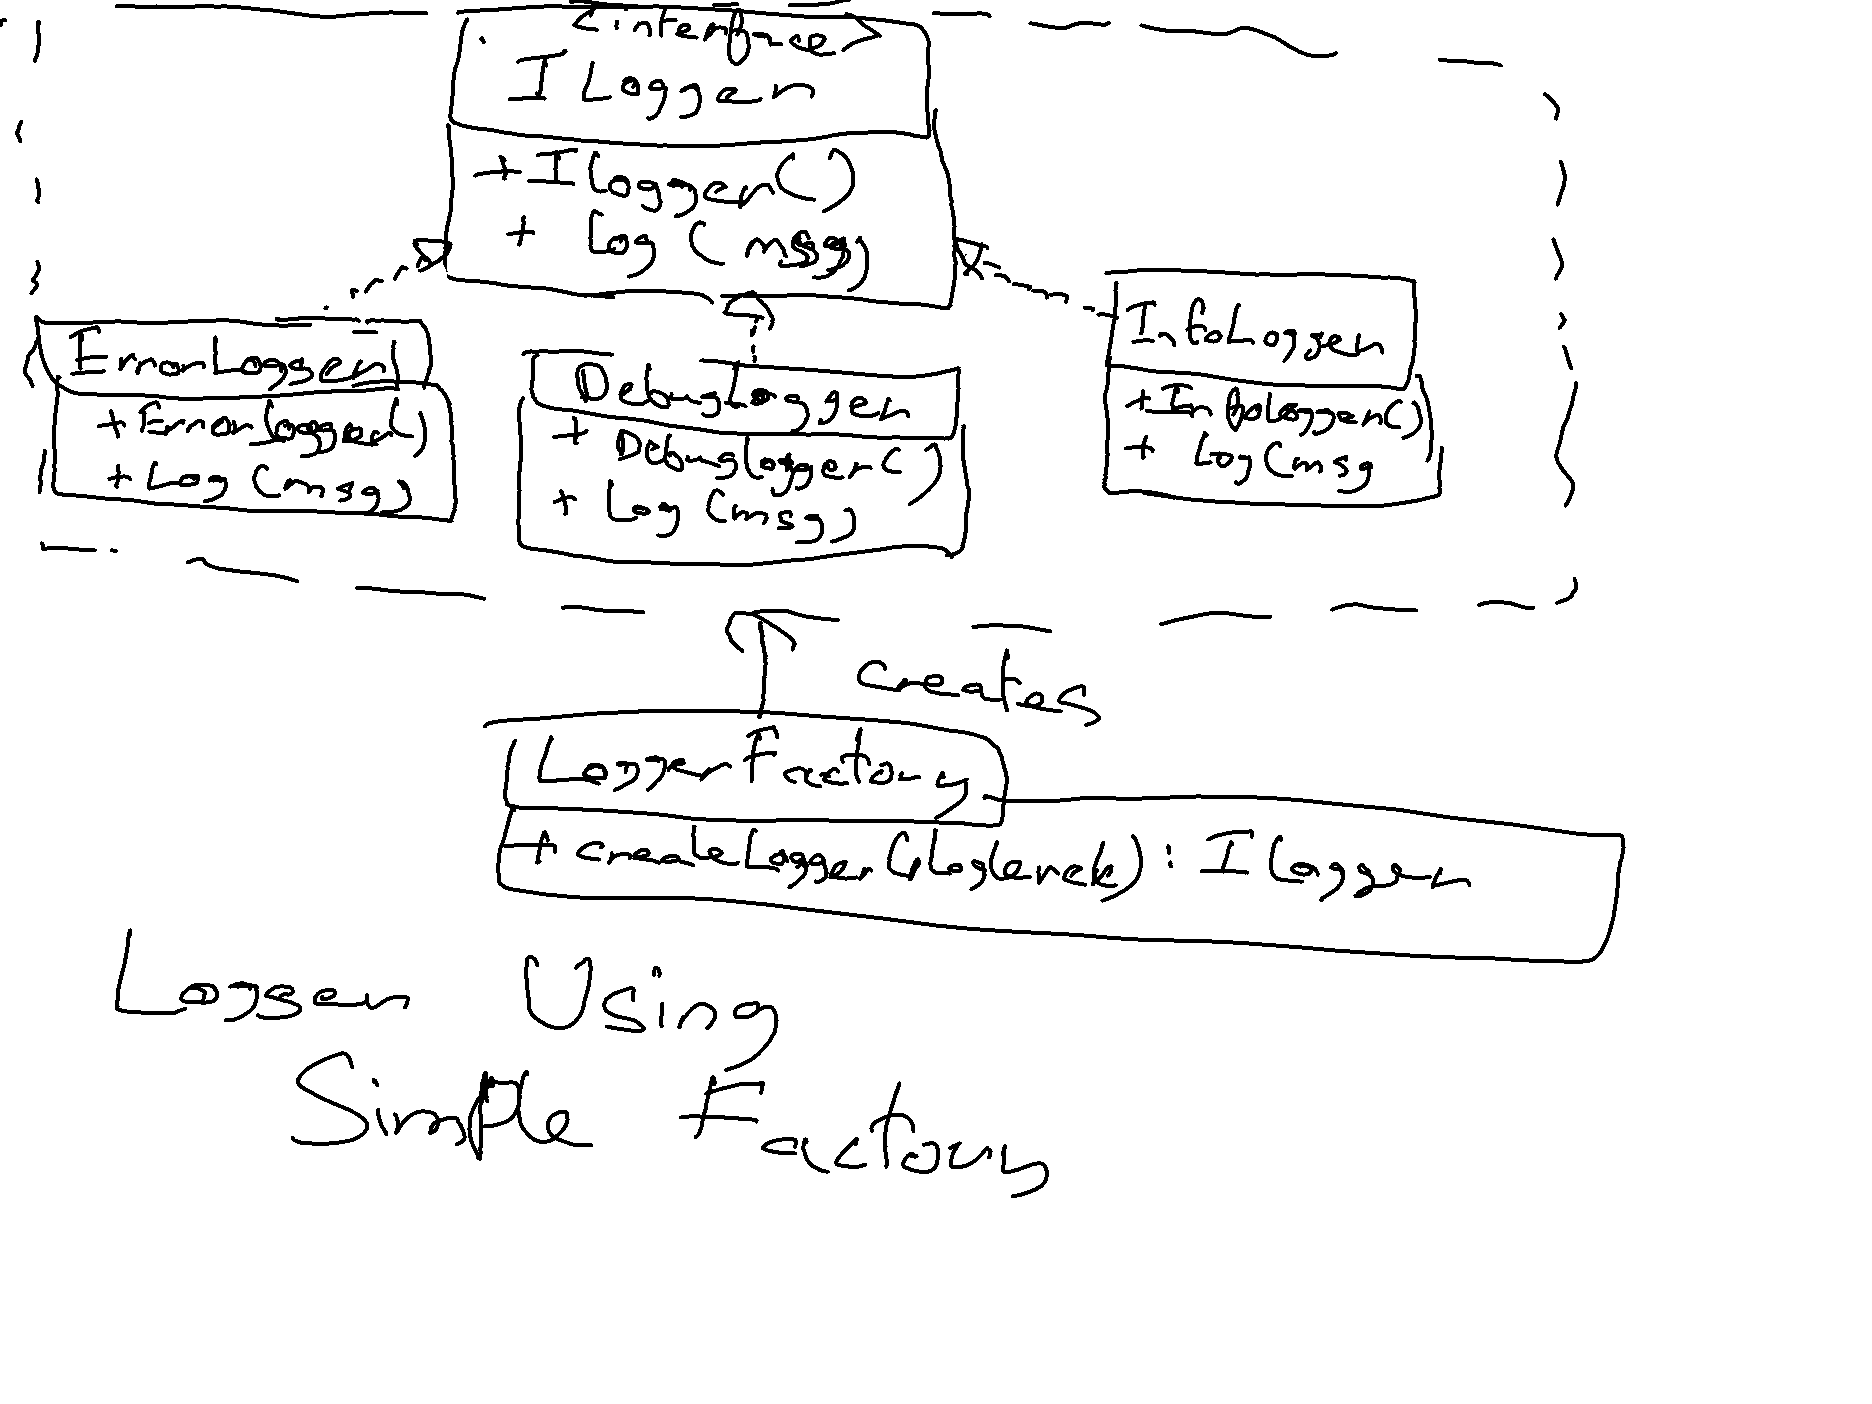 <interface>
ILogger
+ILogger()
+ Log (msg)
ErrorLogger
+ErrorLogger()
+Log (msg)
DebugLogger
+ DebugLogger()
+ Log (msg)
InfoLogger
+InfoLogger()
+ Log(msg
creates
LoggerFactory
+createLogger( ) : ILogger
Logger Using
Simple Factory